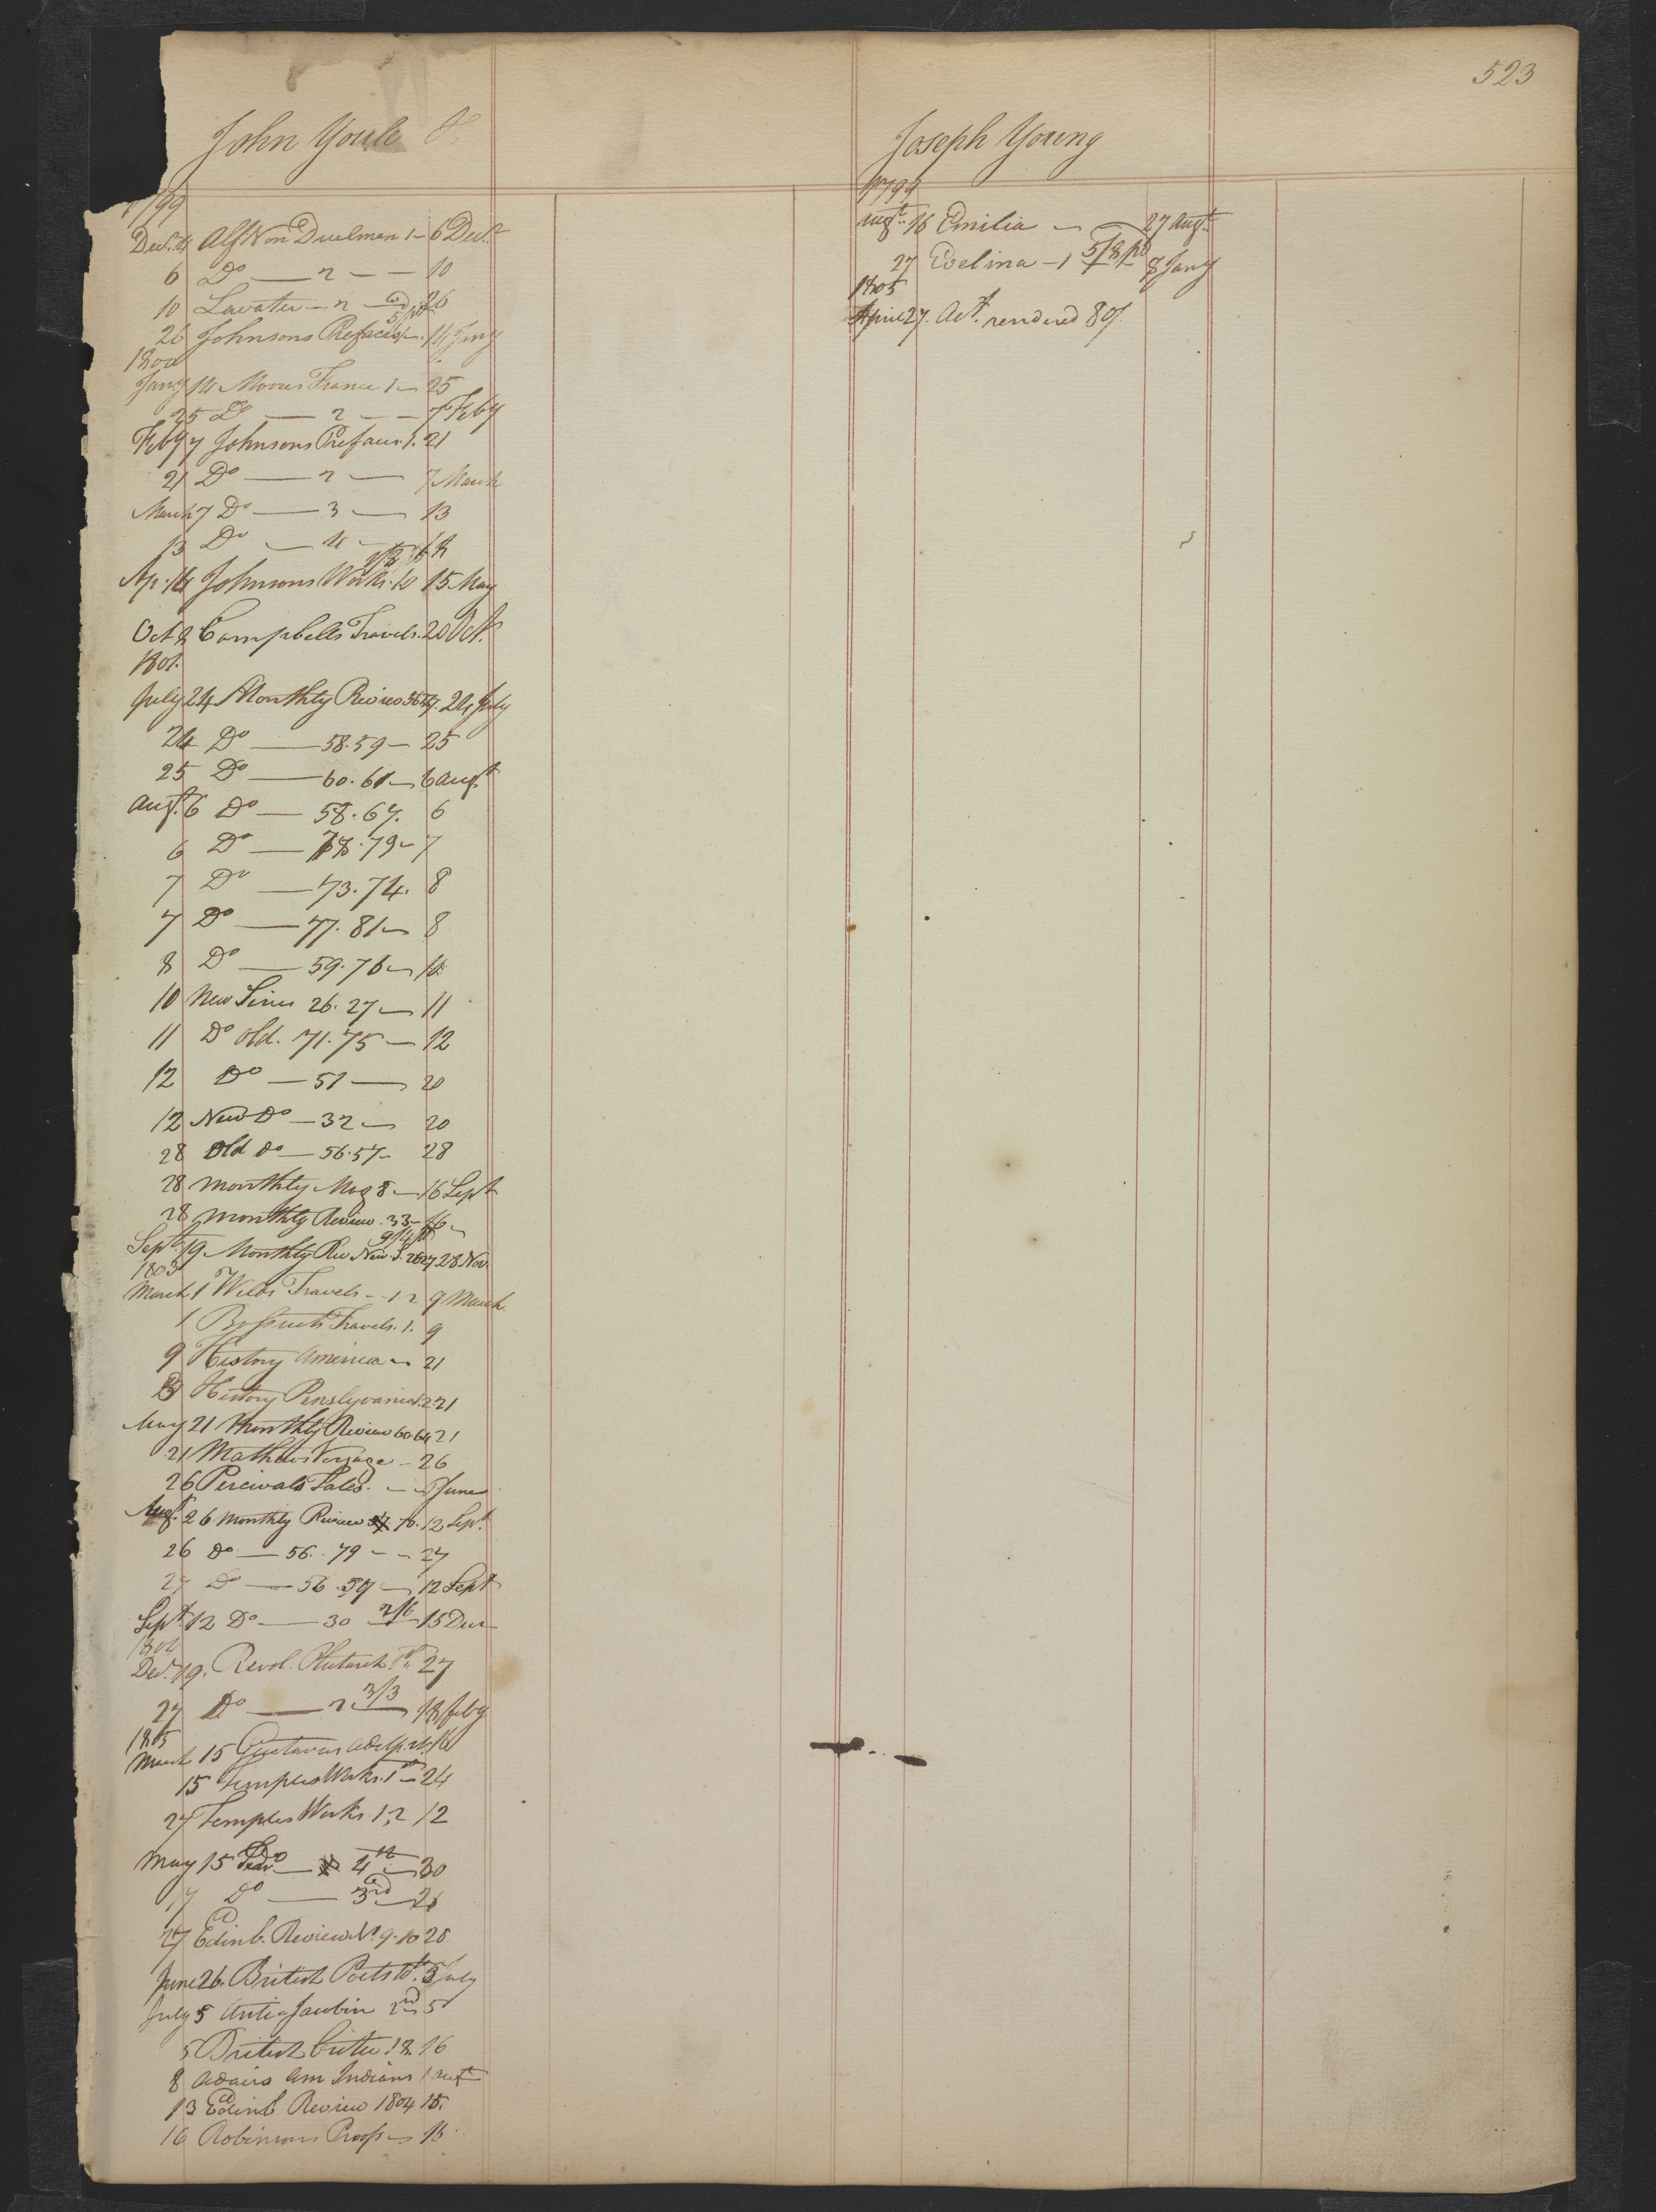 523
John Youle
1799
Decr. 4 Alf Von Duelman 1 - 6 Decr.
6 Do - 2 - 10
10 Lavater - 2 - 26
26 Johnsons Prefaces 14 Jany
1800
Jany 14 Moores France 1 - 25
25 Do - 2 - 7 Feby
Feby 7 Johnsons Prefaces 1. 21
21 Do - 2 - 7 March
March 7 Do - 3 - 13
13 Do - 4 -
Ap. 14 Johnsons Works. 10 15 May
Oct 8 Campbells Travels. 20 Oct.
1801.
July 24 Monthly Review 56.57. 24 July
24 Do - 58.59 - 25
25 Do - 60.61 - 6 Augt
Augt. 6 Do - 58.67. 6
6 Do - 78.79 - 7
7 Do - 73.74. 8
7 Do - 77.81 - 8
8 Do - 59.76 - 10
10 New Series 26.27 - 11
11 Do Old. 71.75 - 12
12 Do - 51 - 20
12 New Do - 32 - 20
28 Old do - 56.57 - 28
28 Monthly Mag 8 - 16 Sept
28 Monthly Review. 33 - 16
Sept. 19. Monthly Rev New S. 26 27 28 Nov.
1803
March 1 Welds Travels - 1.2 9 March
1 Travels. 1. 9
9 History America - 21
History Penslyvania 1.2 21
May 21 Monthly Review 60.64 21
21 Mathews Voyage - 26
26 Percivals Tales. - June
Augt. 26 Monthly Review 70. 12 Sept.
26 do - 56. 79 - - 27
27 Do - 56.57 - 12 Sept
Sept. 12 Do - 30 2/6 15 Decr
1804
Decr. 19. Revol. Plutarch 1st. 27
27 Do - 2 3/3 18 Feby
1805
March 15 Gustavus Adolp. 16
15 Temples Works. 1st - 24
27 Temples Works. 1,2 12
May 15 Do - 4th - 30
17 Do - 3rd - 26
27 Edinb. Review No. 9.10 28
June 26. British Poets 10th. 5 July
July 5 Anti-Jacobin 2nd 5
5 British Critic 18. 16
8 Adairs Am Indians 1 Augt
13 Edinb Review 1804 15.
16 Robinsons Proofs - 16
Joseph Young
1799
Augt. 16 Emilia - 27 Augt.
27 Evelina - 1 5/8 pd 8 Jany
1805
April 27. Act. rendered 8/.